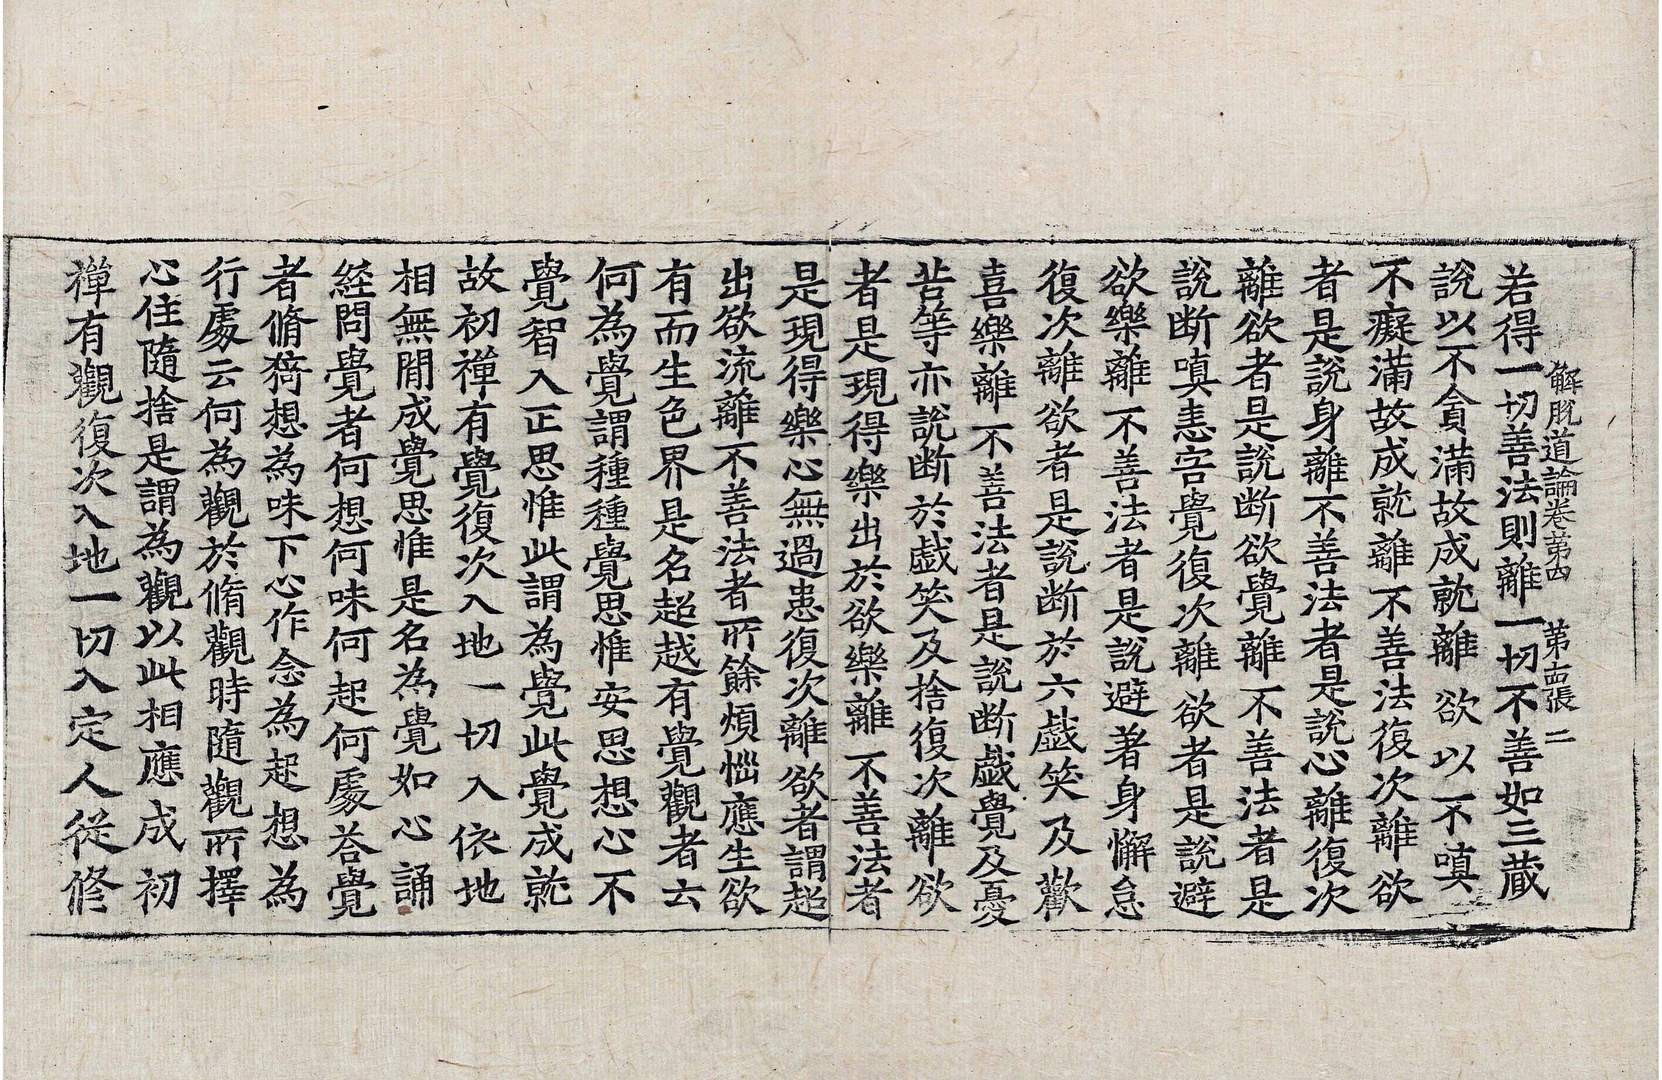 解脫道論卷第四　第十四張　二
若得一切善法則離一切不善如三藏
說以不貪滿故成就離欲以不嗔
不癡滿故成就離不善法復次離欲
者是說身離不善法者是說心離復次
離欲者是說断欲覺離不善法者是
說断嗔恚害覺復次離欲者是說避
欲樂離不善法者是說避著身懈怠
復次離欲者是說断於六戱笑及歡
喜樂離不善法者是說断戱覺及憂
苦等亦說断於戱笑及捨復次離欲
者是現得樂出於欲樂離不善法者
是現得樂心無過患復次離欲者謂超
出欲流離不善法者所餘煩惱應生欲
有而生色界是名超越有覺觀者云
何為覺謂種種覺思惟安思想心不
覺智入正思惟此謂為覺此覺成就
故初禪有覺復次入地一切入依地
相無間成覺思惟是名為覺如心誦
経問覺者何想何味何起何處荅覺
者脩猗想為味下心作念為起想為
行處云何為觀於脩觀時隨觀所擇
心住隨捨是謂為觀以此相應成初
禪有觀復次入地一切入定人從修